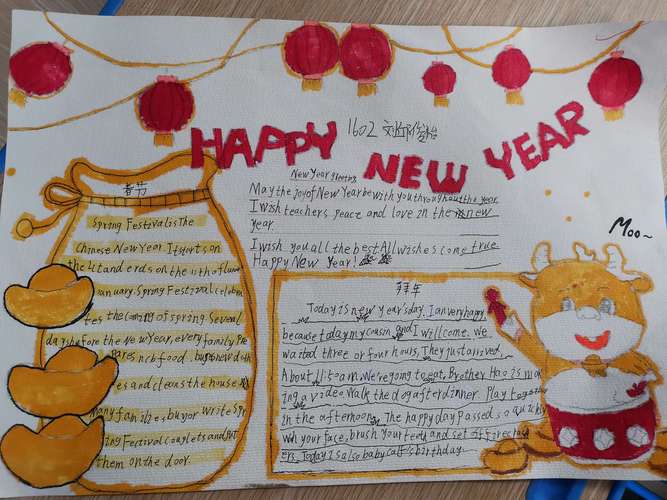 HAPPY NEW YEAR
1602
New Year greeting
May the joy of New Year be with you throughout the year
I wish teachers peace and love in the new
year.
I wish you all the best All wishes come true
Happy New year!
Moo~
春节
Spring Festival is The
Chinese New Year. It starts on
the 1st and ends on the
January. Spring Festival celebra
tes the coming of spring. Several
days before the New Year, every family Pre
Pares rich food. buys new
es and cleans the house.
Many families, buy or write Spr
ing Festival couplets and put
them on the door.
拜年
Today is new year's day. I am very happy,
because today my cousin and I will come. We
waited three or four hours. They just arrived.
About 11:50 am. We're going to eat, Brother Hao is mak
ing a video. Walk the dog after dinner. Play together
in the afternoon. The happy day passed so quickly
Wash your face, brush your teeth and set off firecrack
ers. Today is also baby calf's birthday.